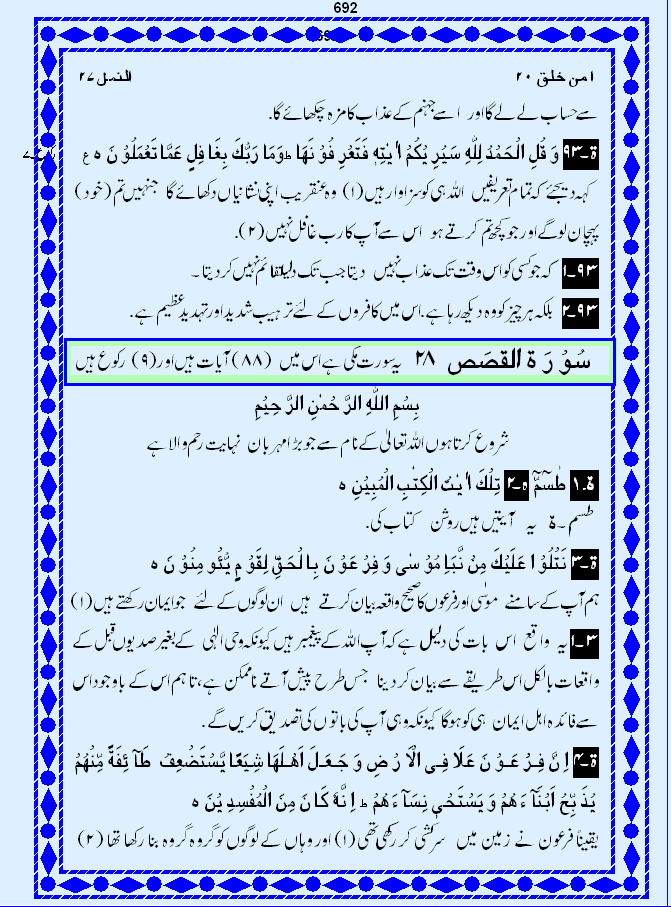 692
امن خلق ۲۰ النمل ۲۷
سے حساب لے لے گا اور اسے جہنم کے عذاب کا مزہ چکھائے گا۔
ۃ۔۹۳ وَ قُلِ الْحَمْدُ لِلّٰهِ سَيُرِيْكُمْ اٰيٰتِهٖ فَتَعْرِفُوْنَهَا ۔ وَمَا رَبُّكَ بِغَافِلٍ عَمَّا تَعْمَلُوْنَ ہ ع
کہہ دیجئے کہ تمام تعریفیں اللہ ہی کو سزاوار ہیں (۱) وہ عنقریب اپنی نشانیاں دکھائے گا جنہیں تم (خود)
پہچان لو گے اور جو کچھ تم کرتے ہو اس سے آپ کا رب غافل نہیں (۲)۔
۹۳۔۱ کہ جو کسی کو اس وقت تک عذاب نہیں دیتا جب تک دلیل قائم نہیں کر دیتا۔
۹۳۔۲ بلکہ ہر چیز کو وہ دیکھ رہا ہے۔ اس میں کافروں کے لئے ترہیب شدید اور تہدید عظیم ہے۔
سُوْرَةُ الْقَصَص ۲۸ یہ سورت مکی ہے اس میں (۸۸) آیات ہیں اور (۹) رکوع ہیں
بِسْمِ اللّٰهِ الرَّحْمٰنِ الرَّحِيْمِ
شروع کرتا ہوں اللہ تعالیٰ کے نام سے جو بڑا مہربان نہایت رحم والا ہے
ۃ۔۱ طٰسٓمّٓ ہ۔۲ تِلْكَ اٰيٰتُ الْكِتٰبِ الْمُبِيْنِ ہ
طسم۔ۃ یہ آیتیں ہیں روشن کتاب کی۔
ۃ۔۳ نَتْلُوْا عَلَيْكَ مِنْ نَّبَاِ مُوْسٰى وَ فِرْعَوْنَ بِالْحَقِّ لِقَوْمٍ يُّؤْمِنُوْنَ ہ
ہم آپ کے سامنے موسٰی اور فرعون کا صحیح واقعہ بیان کرتے ہیں ان لوگوں کے لئے جو ایمان رکھتے ہیں (۱)
۳۔۱ یہ واقع اس بات کی دلیل ہے کہ آپ اللہ کے پیغمبر ہیں کیونکہ وحی الٰہی کے بغیر صدیوں قبل کے
واقعات بالکل اس طریقے سے بیان کر دینا جس طرح پیش آتے ناممکن ہے، تاہم اس کے باوجود اس
سے فائدہ اہل ایمان ہی کو ہوگا کیونکہ وہی آپ کی باتوں کی تصدیق کریں گے۔
ۃ۔۴ اِنَّ فِرْعَوْنَ عَلَا فِى الْاَرْضِ وَ جَعَلَ اَهْلَهَا شِيَعًا يَّسْتَضْعِفُ طَآئِفَةً مِّنْهُمْ
يُذَبِّحُ اَبْنَآءَهُمْ وَ يَسْتَحْىٖ نِسَآءَهُمْ ۔ اِنَّهٗ كَانَ مِنَ الْمُفْسِدِيْنَ ہ
یقیناً فرعون نے زمین میں سرکشی کر رکھی تھی (۱) اور وہاں کے لوگوں کو گروہ گروہ بنا رکھا تھا (۲)